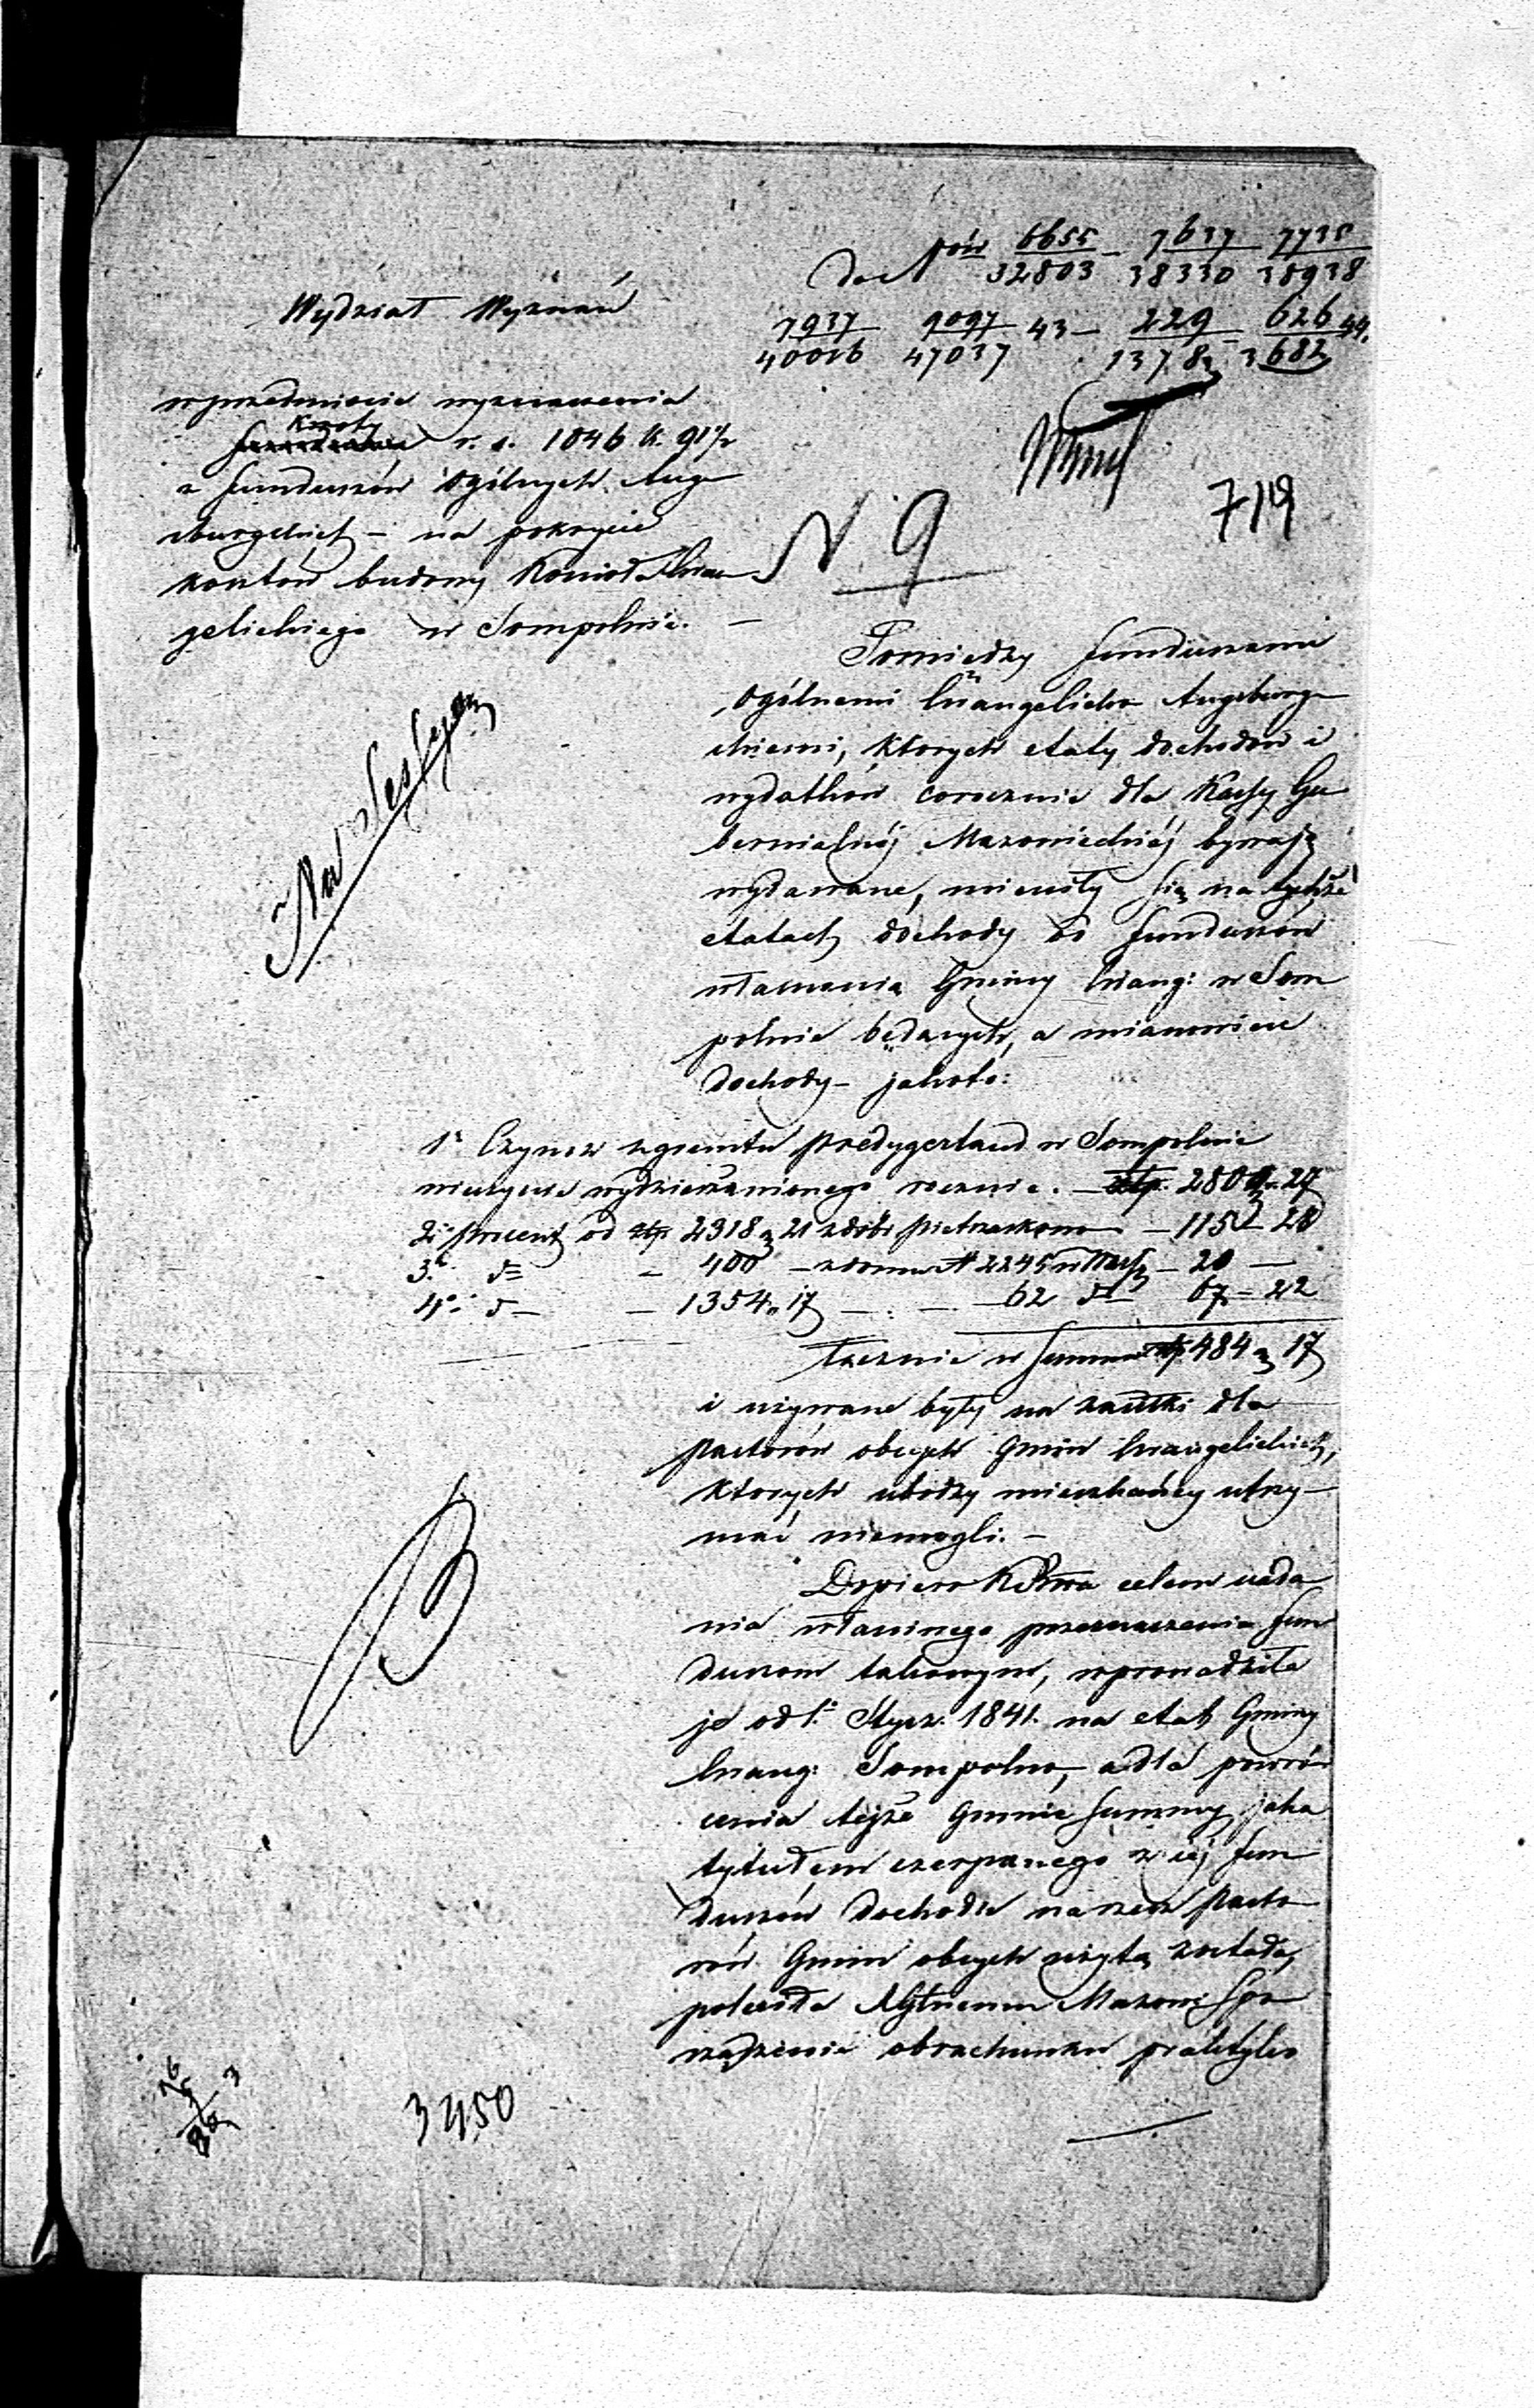 do Nrów 6655/32803 – 7637/38330 7735/38938
7937/40016 9097/47037 43 – 229/1378 626/3682 44.
Wydział Wyznań
w przedmiocie wyznaczenia
kwoty r. s. 1046 k. 91½
z funduszów ogólnych Aug
sburgskich – na pokrycie
kosztów budowy Kościoła Ewan
gelickiego w Sompolnie. –
719
N. 9
Na Sessyą
Pomiędzy funduszami
ogólnemi Ewangelicko Augsburg
skiemi, których etaty dochodów i
wydatków corocznie dla Kassy Gu
bernialnéj Mazowieckiéj bywają
wydawane, mieściły się na tychże
etatach dochody od funduszów
własnością Gminy Ewang: w Som
polnie będących, a mianowicie
dochody – jakoto:
1o Czynsz z gruntu predygerland w Sompolnie
wieczyście wydzierżawionego rocznie. – złp. 280 „ 27
2o procent od złp 2318 „ 21 z dóbr Pietraszkowo – 115 – 28
3o do – 400 – z domu N 2245 w Warsz – 20 –
4o do – 1354 „ 17 – – 62 do 67 – 22
łącznie w summie złp. 484 „ 17
i używane były na zasiłki dla
pastorów obcych Gmin Ewangelickich,
których ubodzy mieszkańcy utrzy–
mać niemogli. –
Dopiero K Rzwa celem nada
nia właściwego przeznaczenia fun
duszom takowym, wprowadziła
je od 1o Stycz. 1841. na etat Gminy
Ewang: Sompolno, a dla powró
cenia tejże Gminie summy, jaka
tytułem czerpanego z jéj fun
duszów dochodu na rzecz pasto
rów Gmin obcych użytą została,
poleciła RGlnemu Mazow: spo
rządzenie obrachunku, praktyko
3450